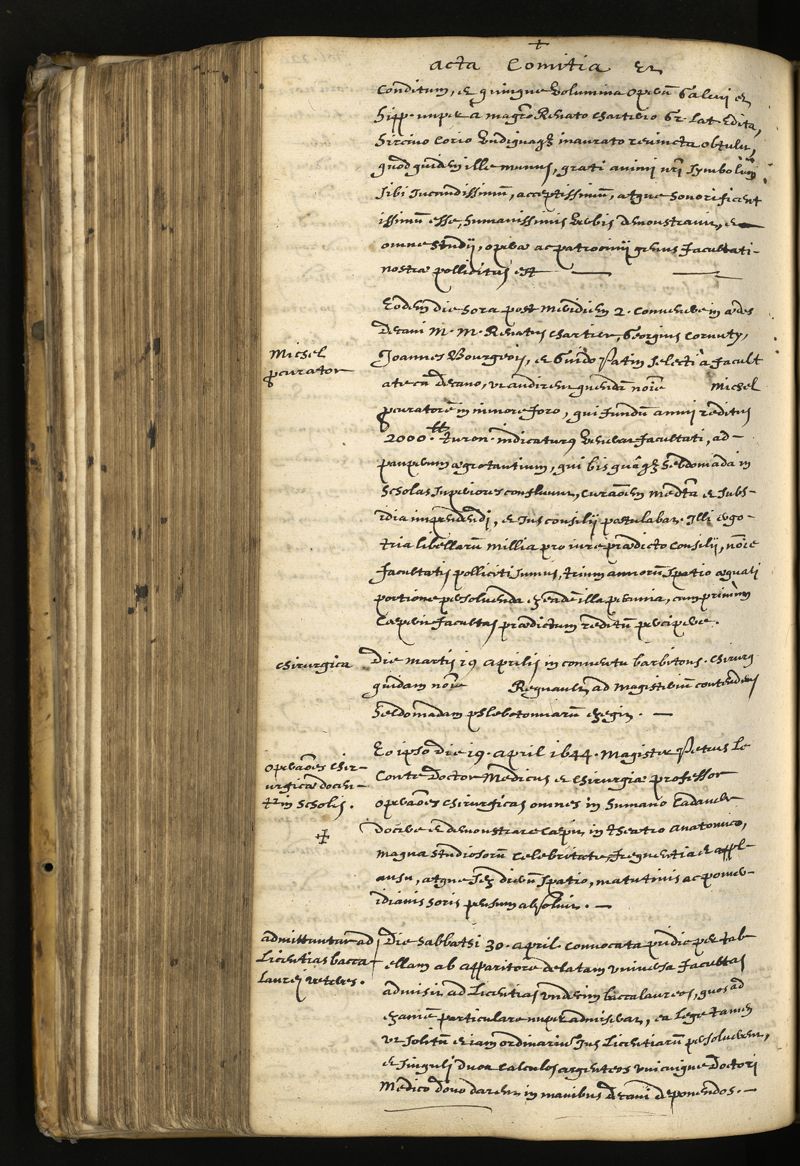 +
acta Comitia et
Conditum, et quinque volumina operũ Galeni et
Hipp. nuper a magrõ Renato charterio Gr. Lat. Edita,
Hircino corio undiquaqȝ inaurato revincta obtulit,
quod quidem ille munus, grati animi nrĩ symbolum
sibi Jucundissimũ, acceptissimũ, atque honorificent
issimũ esse, humanissimis verbis demonstravit, et
omne studij, operæ ac patrocinij genus facultati
nostræ pollicitus est
Eodem die hora post meridiem 2. convenere in ædes
Decani M. M. Renatus chartier, Georgius Cornuty,
Michel
pcurator
Joannes Bourgeois, et Guido Patin selecti à facult
ate cũ decano, ut audirent quendã noĩe Michel
pcuratorẽ in minore foro, qui fundũ annui reditus
2000. tt turon. indicaturus venerat facultati, ad
pauperum ægrotantium, qui bis quâqȝ hebdomada in
scholas superiores confluunt, curaõem medtã et subs-
idia impendendi, et Jus consilij postulabat. Illi ergo
tria libellarũ millia pro iure prædicto consilij, noĩe
facultatis polliciti sumus, trium annorũ spatio æquali
portione persolvenda ex eadẽ illa pecunia, cum primùm
cœperit facultas prædictum reditũ percipere.
chirurgica
Die martis 19 aprilis in conventu barbitons. chirurg
quidam noĩe Regnault, ad magisteriũ contendens
hebdomadam phlebotomiarũ exegit.
operaões chir-
urgicæ docen-
tr in scholis.
+
Eo ipso die 19. april 1644. Magister Petrus Le
Conte Doctor Medicus et chirurgiæ professor
operaões chirurgicas omnes in humano cadavere
docere et demonstrare cœpit in theatro anatomico,
magna studiosorũ celebritate, frequentia et appl-
ausu, atque sex dierũ spatio, matutinis ac pomer-
idianis horis pensum absolvit.
admittuntur ad
Licentias bacca
laurei veteres.
Die sabbathi 30. april. convocata pridie per tab
ellam ab apparitore delatam universa facultas
admisit ad Licentias undecim baccalaureos, quos ad
examẽ particulare nuper admiserat, ea lege tamen
ut solitũ et iam ordinariũ Jus Licentiarũ persolverent,
et singuli duos calculos argenteos unicuique Doctori
Medico dono darent in manibus decani deponendos.